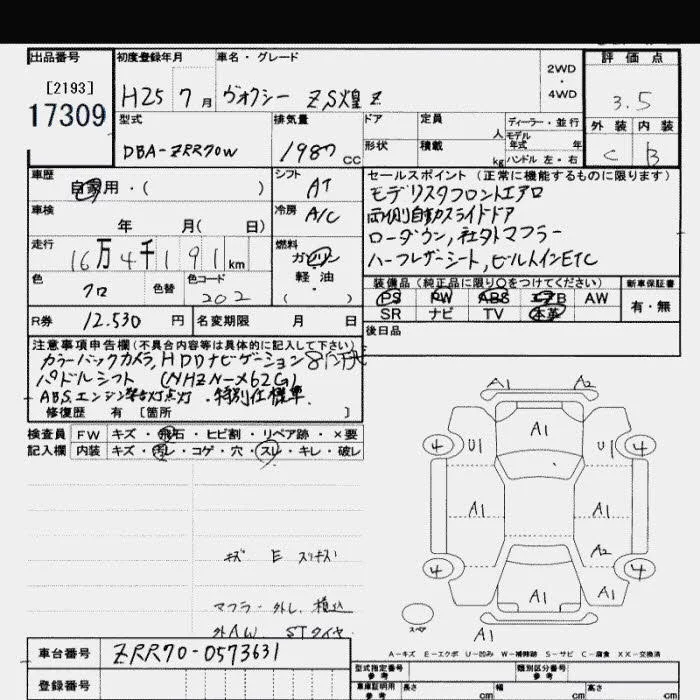 出品番号 初度登録年月 車名・グレード 評価点
[2193]
17309
H25 7月 ヴォクシー ZS煌Z 2WD・4WD 3.5
型式 排気量 ドア 定員 人 ディーラー・並行 外装 内装
DBA-ZRR70W 1987cc 形状 積載 kg モデル年式 年 ハンドル 左・右 C B
車歴 自家用・( ) シフト AT セールスポイント(正常に機能するものに限ります)
モデリスタフロントエアロ
車検 年 月( 日) 冷房 A/C 両側自動スライドドア
走行 16万4千191km 燃料 ガソリン・軽油・( ) ローダウン,社外マフラー
ハーフレザーシート,ビルトインETC
色 クロ 色替 色コード 202 装備品(純正品に限り○をつけてください) 新車保証書
PS PW ABS エアB AW 有・無
SR ナビ TV 本革
R券 12,530円 名変期限 月 日 後日品
注意事項申告欄(不具合内容等は具体的に記入して下さい)
カラーバックカメラ,HDDナビゲーション
パドルシフト (NHZN-X62G)
ABS エンジン警告灯点灯.特別仕様車.
修復歴 有 [箇所 ]
検査員 FW キズ・飛石・ヒビ割・リペア跡・×要
記入欄 内装 キズ・汚レ・コゲ・穴・スレ・キレ・破レ
A1 A2
A1
4 U1 U1 4
A1 A1
A2
4 4
A1 A1
スペア
A1
キズ E スリキズ
マフラー外し 積込
外AW STタイヤ
A-キズ E-エクボ U-凹み W-補修跡 S-サビ C-腐食 XX-交換済
車台番号 ZRR70-0573631
登録番号
型式指定番号 参考 類別区分番号 参考
車庫証明用 参考 長さ cm 幅 cm 高さ cm